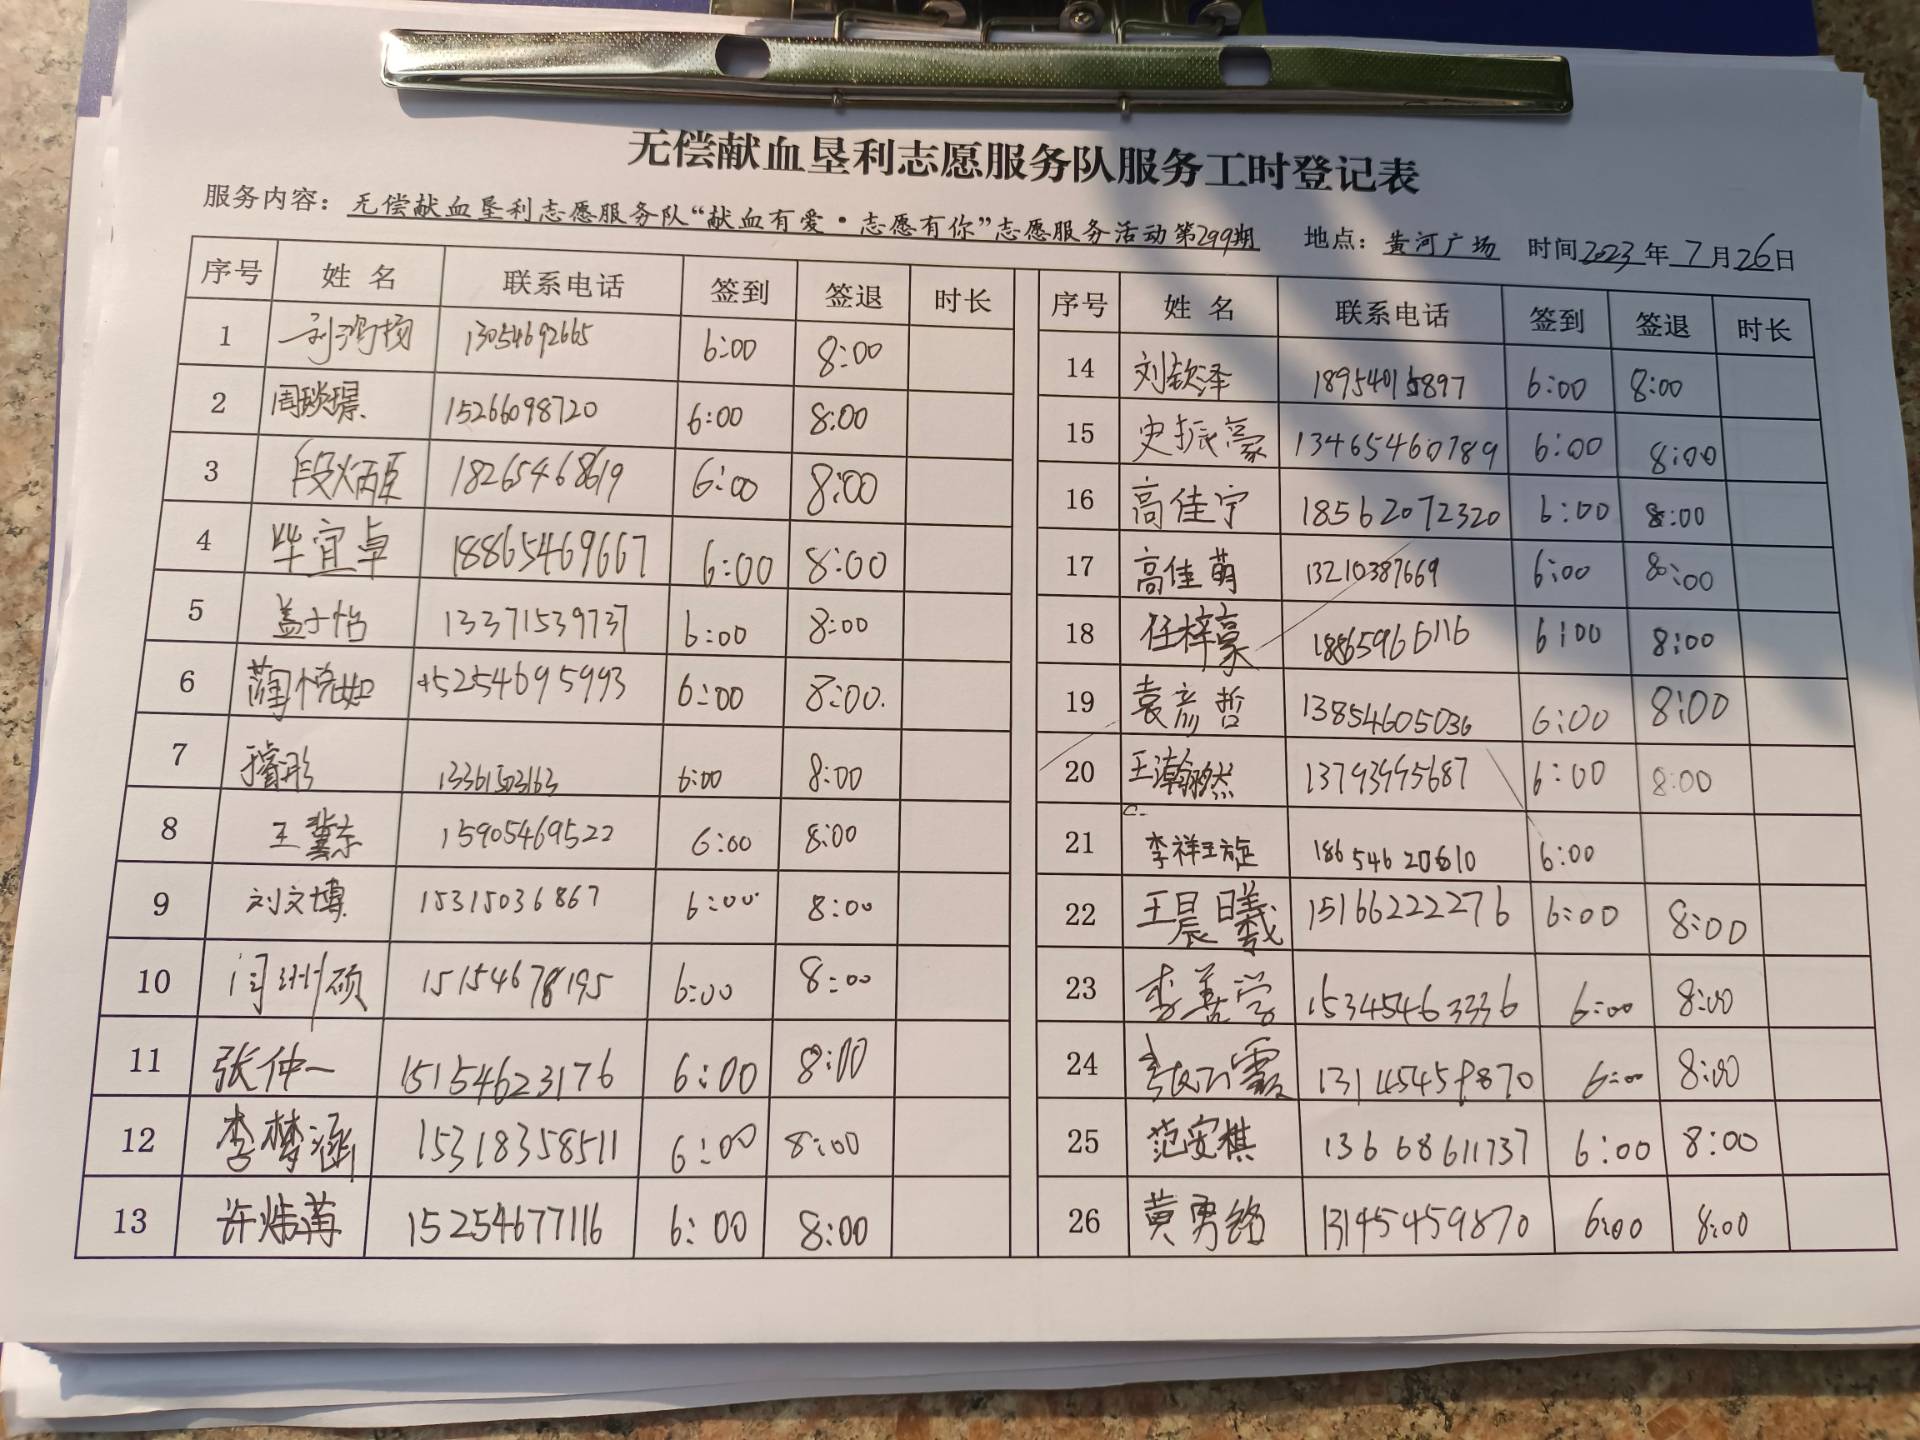 无偿献血垦利志愿服务队服务工时登记表
服务内容：无偿献血垦利志愿服务队“献血有爱·志愿有你”志愿服务活动第299期 地点：黄河广场 时间2023年7月26日
序号 姓名 联系电话 签到 签退 时长 序号 姓名 联系电话 签到 签退 时长
1 刘鸿扬 13054692665 6:00 8:00
2 15266098720 6:00 8:00
3 段炳臣 18265468619 6:00 8:00
4 毕宜卓 18865469667 6:00 8:00
5 盖子怡 13371539737 6:00 8:00
6 蔺悦如 15254695993 6:00 8:00.
7 13361503163 6:00 8:00
8 王冀东 15905469522 6:00 8:00
9 刘文博 15315036867 6:00 8:00
10 闫洲硕 15154678195 6:00 8:00
11 张仲一 15154623176 6:00 8:00
12 李梦涵 15318358511 6:00 8:00
13 15254677116 6:00 8:00
14 刘钦泽 18954015897 6:00 8:00
15 史振豪 13465460789 6:00 8:00
16 高佳宁 18562072320 6:00 8:00
17 高佳萌 13210387669 6:00 8:00
18 任梓豪 18865966116 6:00 8:00
19 袁彦哲 13854605036 6:00 8:00
20 王瀚然 6:00 8:00
21 李祥王旋 18654620610 6:00
22 王晨曦 15166222276 6:00 8:00
23 李善学 15345463336 6:00 8:00
24 6:00 8:00
25 范安棋 13668611737 6:00 8:00
26 黄勇铭 13145459870 6:00 8:00